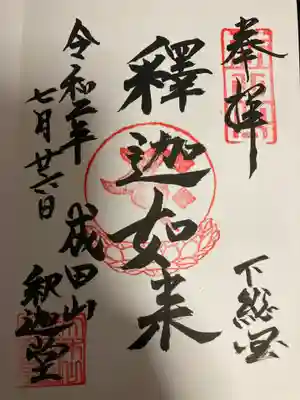 奉拝
下総国
釋迦如来
成田山
釈迦堂
令和二年
七月廿六日